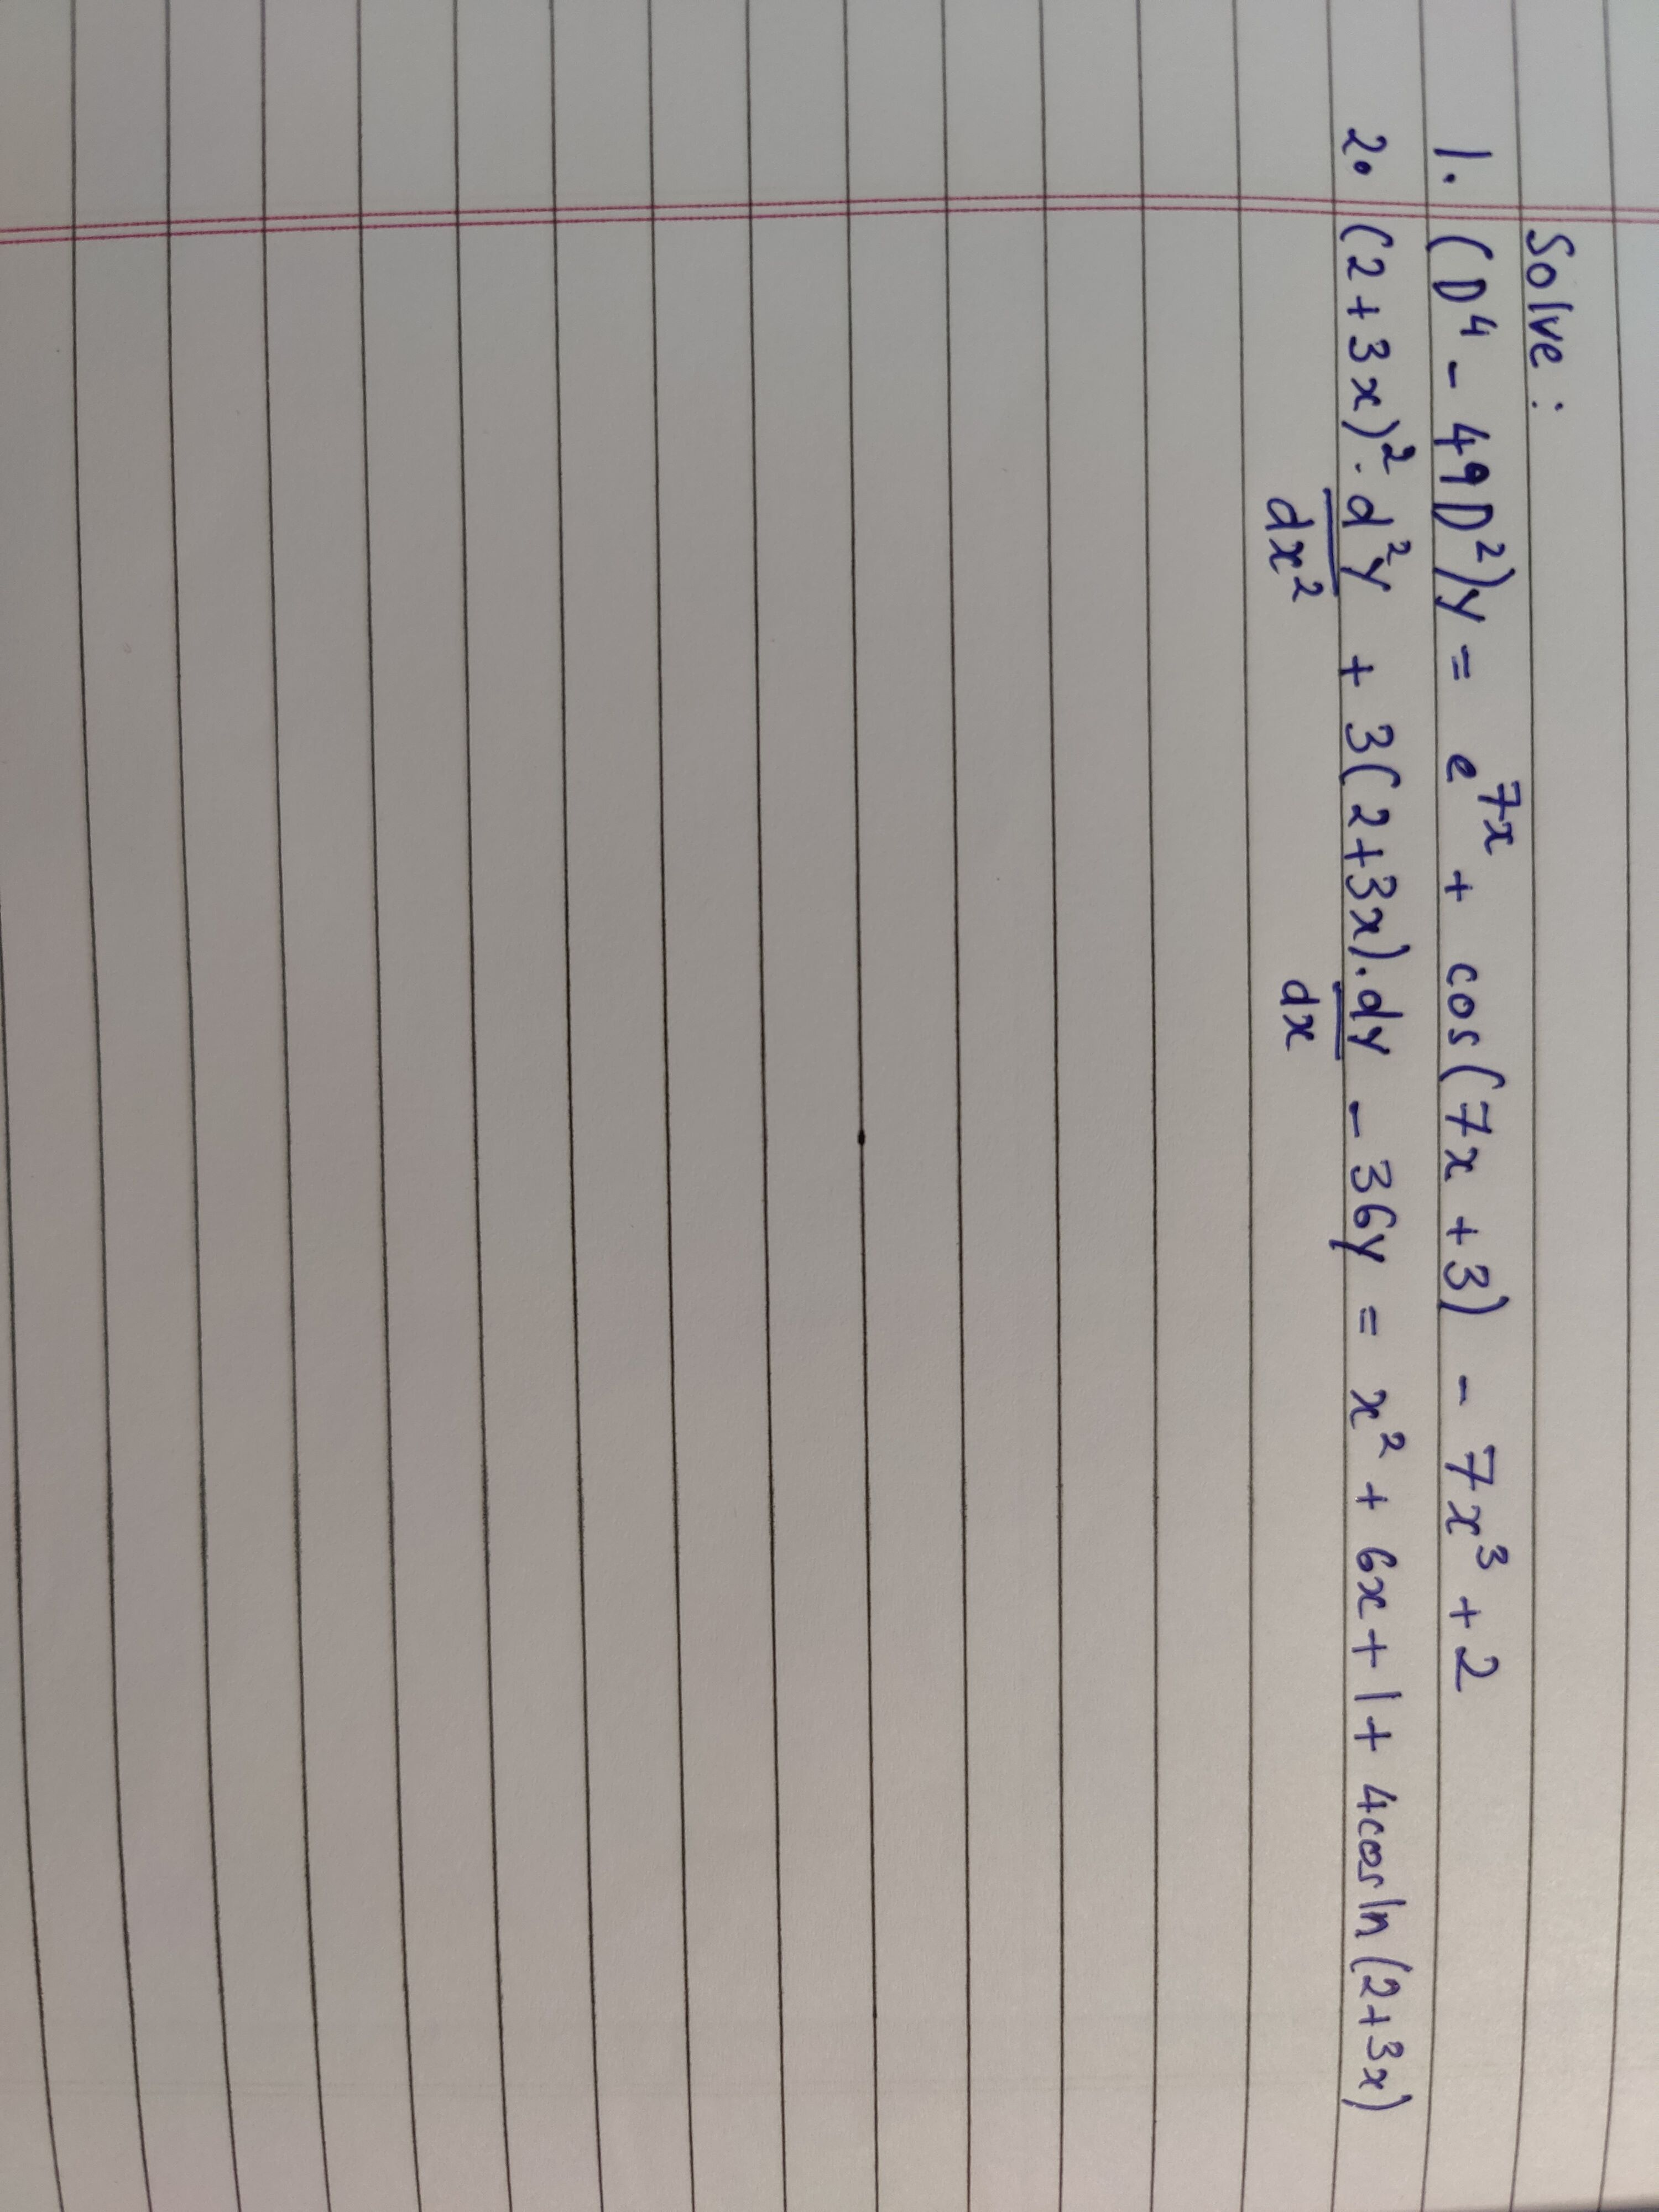 Solve :
1. (D⁴ - 49D²)y = e⁷ˣ + cos(7x + 3) - 7x³ + 2
2. (2+3x)² · d²y/dx² + 3(2+3x) · dy/dx - 36y = x² + 6x + 1 + 4cos ln(2+3x)